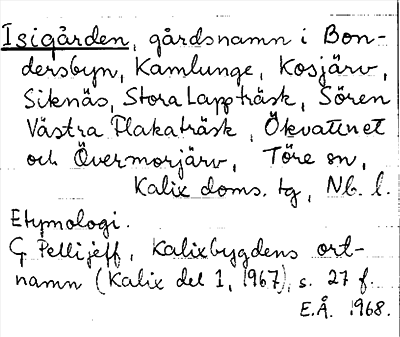 Isigården, gårdsnamn i Bon-
dersbyn, Kamlunge, Kosjärv,
Siknäs, Stora Lappträsk, Sören
Västra Flakaträsk, Ökvattnet
och Övermorjärv, Töre sn,
Kalix doms. tg, Nb. l.
Etymologi.
G Pellijeff, Kalixbygdens ort-
namn (Kalix del 1, 1967), s. 27 f.
E.Å. 1968.